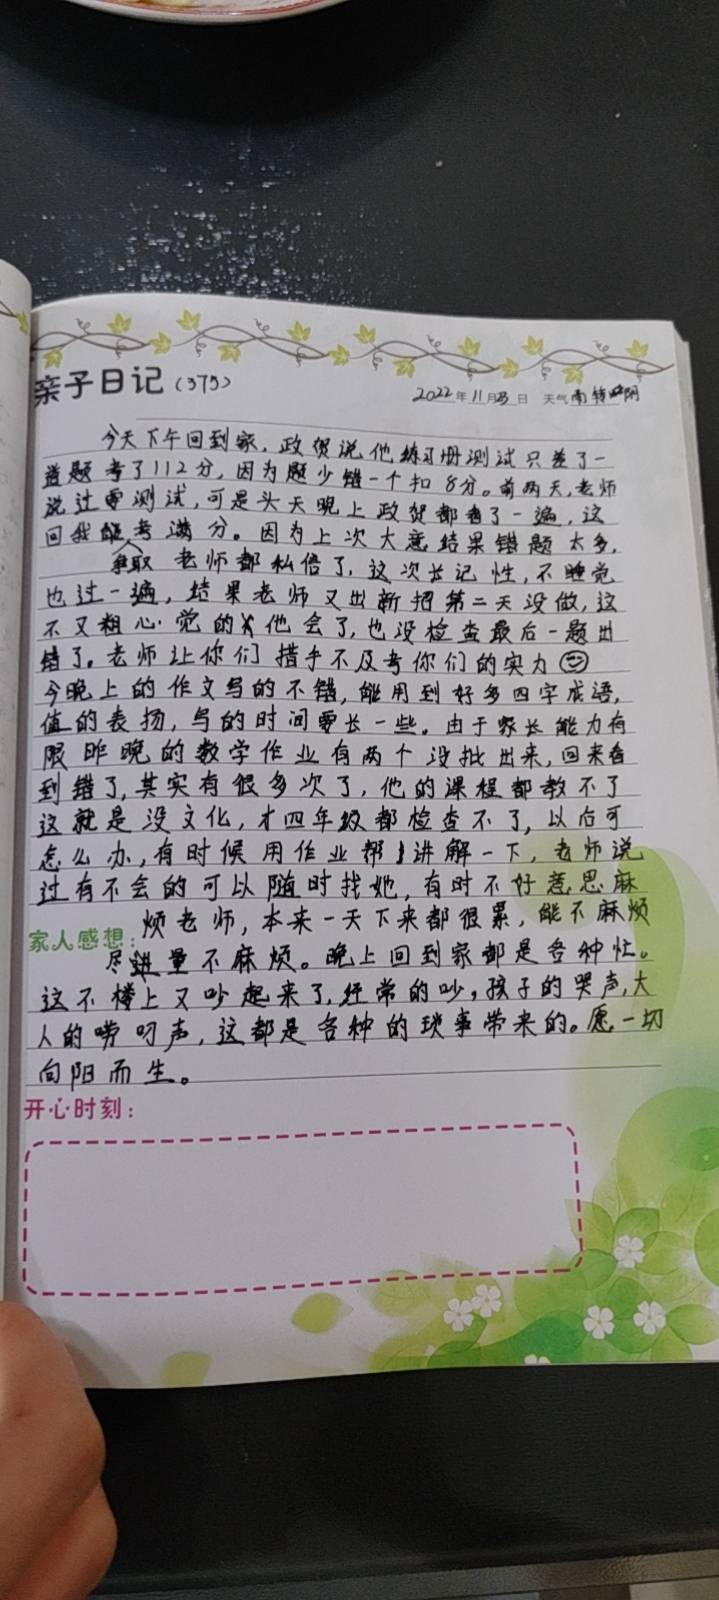 亲子日记（375）
2022年11月 日 天气 转 阴
今天下午回到家，政贺说他练习册测试只差了一
道题考了112分，因为题少错一个扣8分。前两天，老师
说过要测试，可是头天晚上政贺都看了一遍，这
回我 考满分。因为上次大意结果错题太多，
争取 老师都私信了，这次长记性，不睡觉
也过一遍，结果老师又出新招第二天没做，这
不又粗心·觉的 他会了，也没检查最后一题出
错了。老师让你们措手不及考你们的实力
今晚上的作文写的不错，能用到好多四字成语，
值的表扬，写的时间要长一些。由于家长能力有
限昨晚的数学作业有两个没批出来，回来看
到错了，其实有很多次了，他的课程都教不了
这就是没文化，才四年级都检查不了，以后可
怎么办，有时候用作业帮 讲解一下，老师说
过有不会的可以随时找她，有时不好意思麻
烦老师，本来一天下来都很累，能不麻烦
家人感想：
尽 量不麻烦。晚上回到家都是各种忙。
这不楼上又吵起来了，经常的吵，孩子的哭声，大
人的唠叨声，这都是各种的琐事带来的。愿一切
向阳而生。
开心时刻：